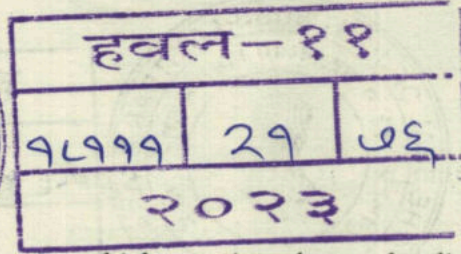 हवल-११
१८१११ २१ ७६
२०२३